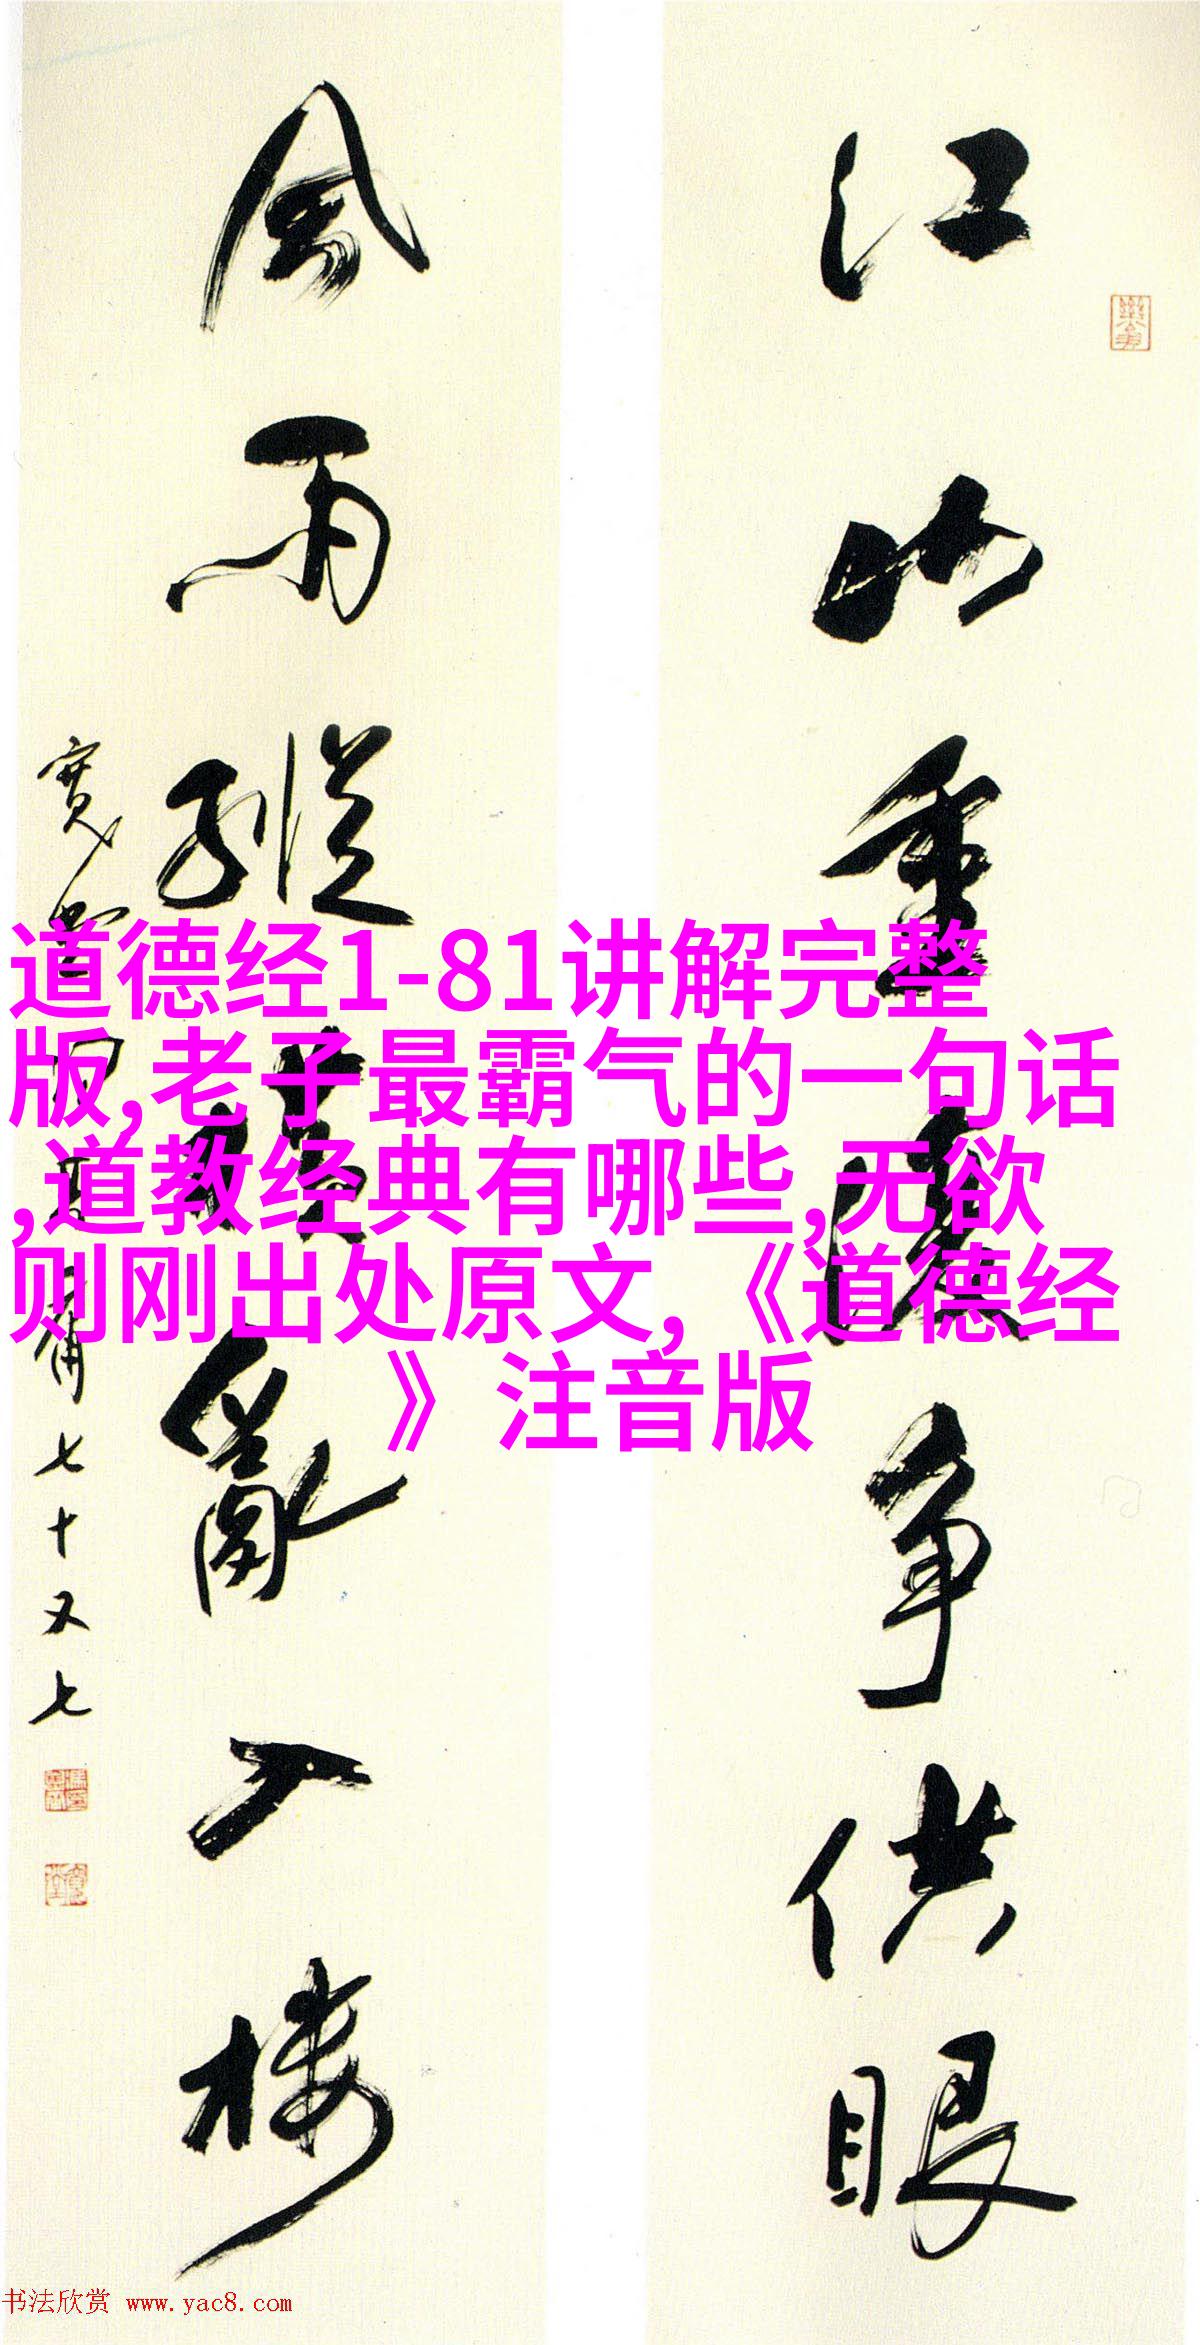 江山重復争供眼
風雨縱橫亂入楼
寬堂馮其庸七十又七
道德经1-81讲解完整
版,老子最霸气的一句话
,道教经典有哪些,无欲
则刚出处原文,《道德经
》注音版
书法欣赏 www.yac8.com